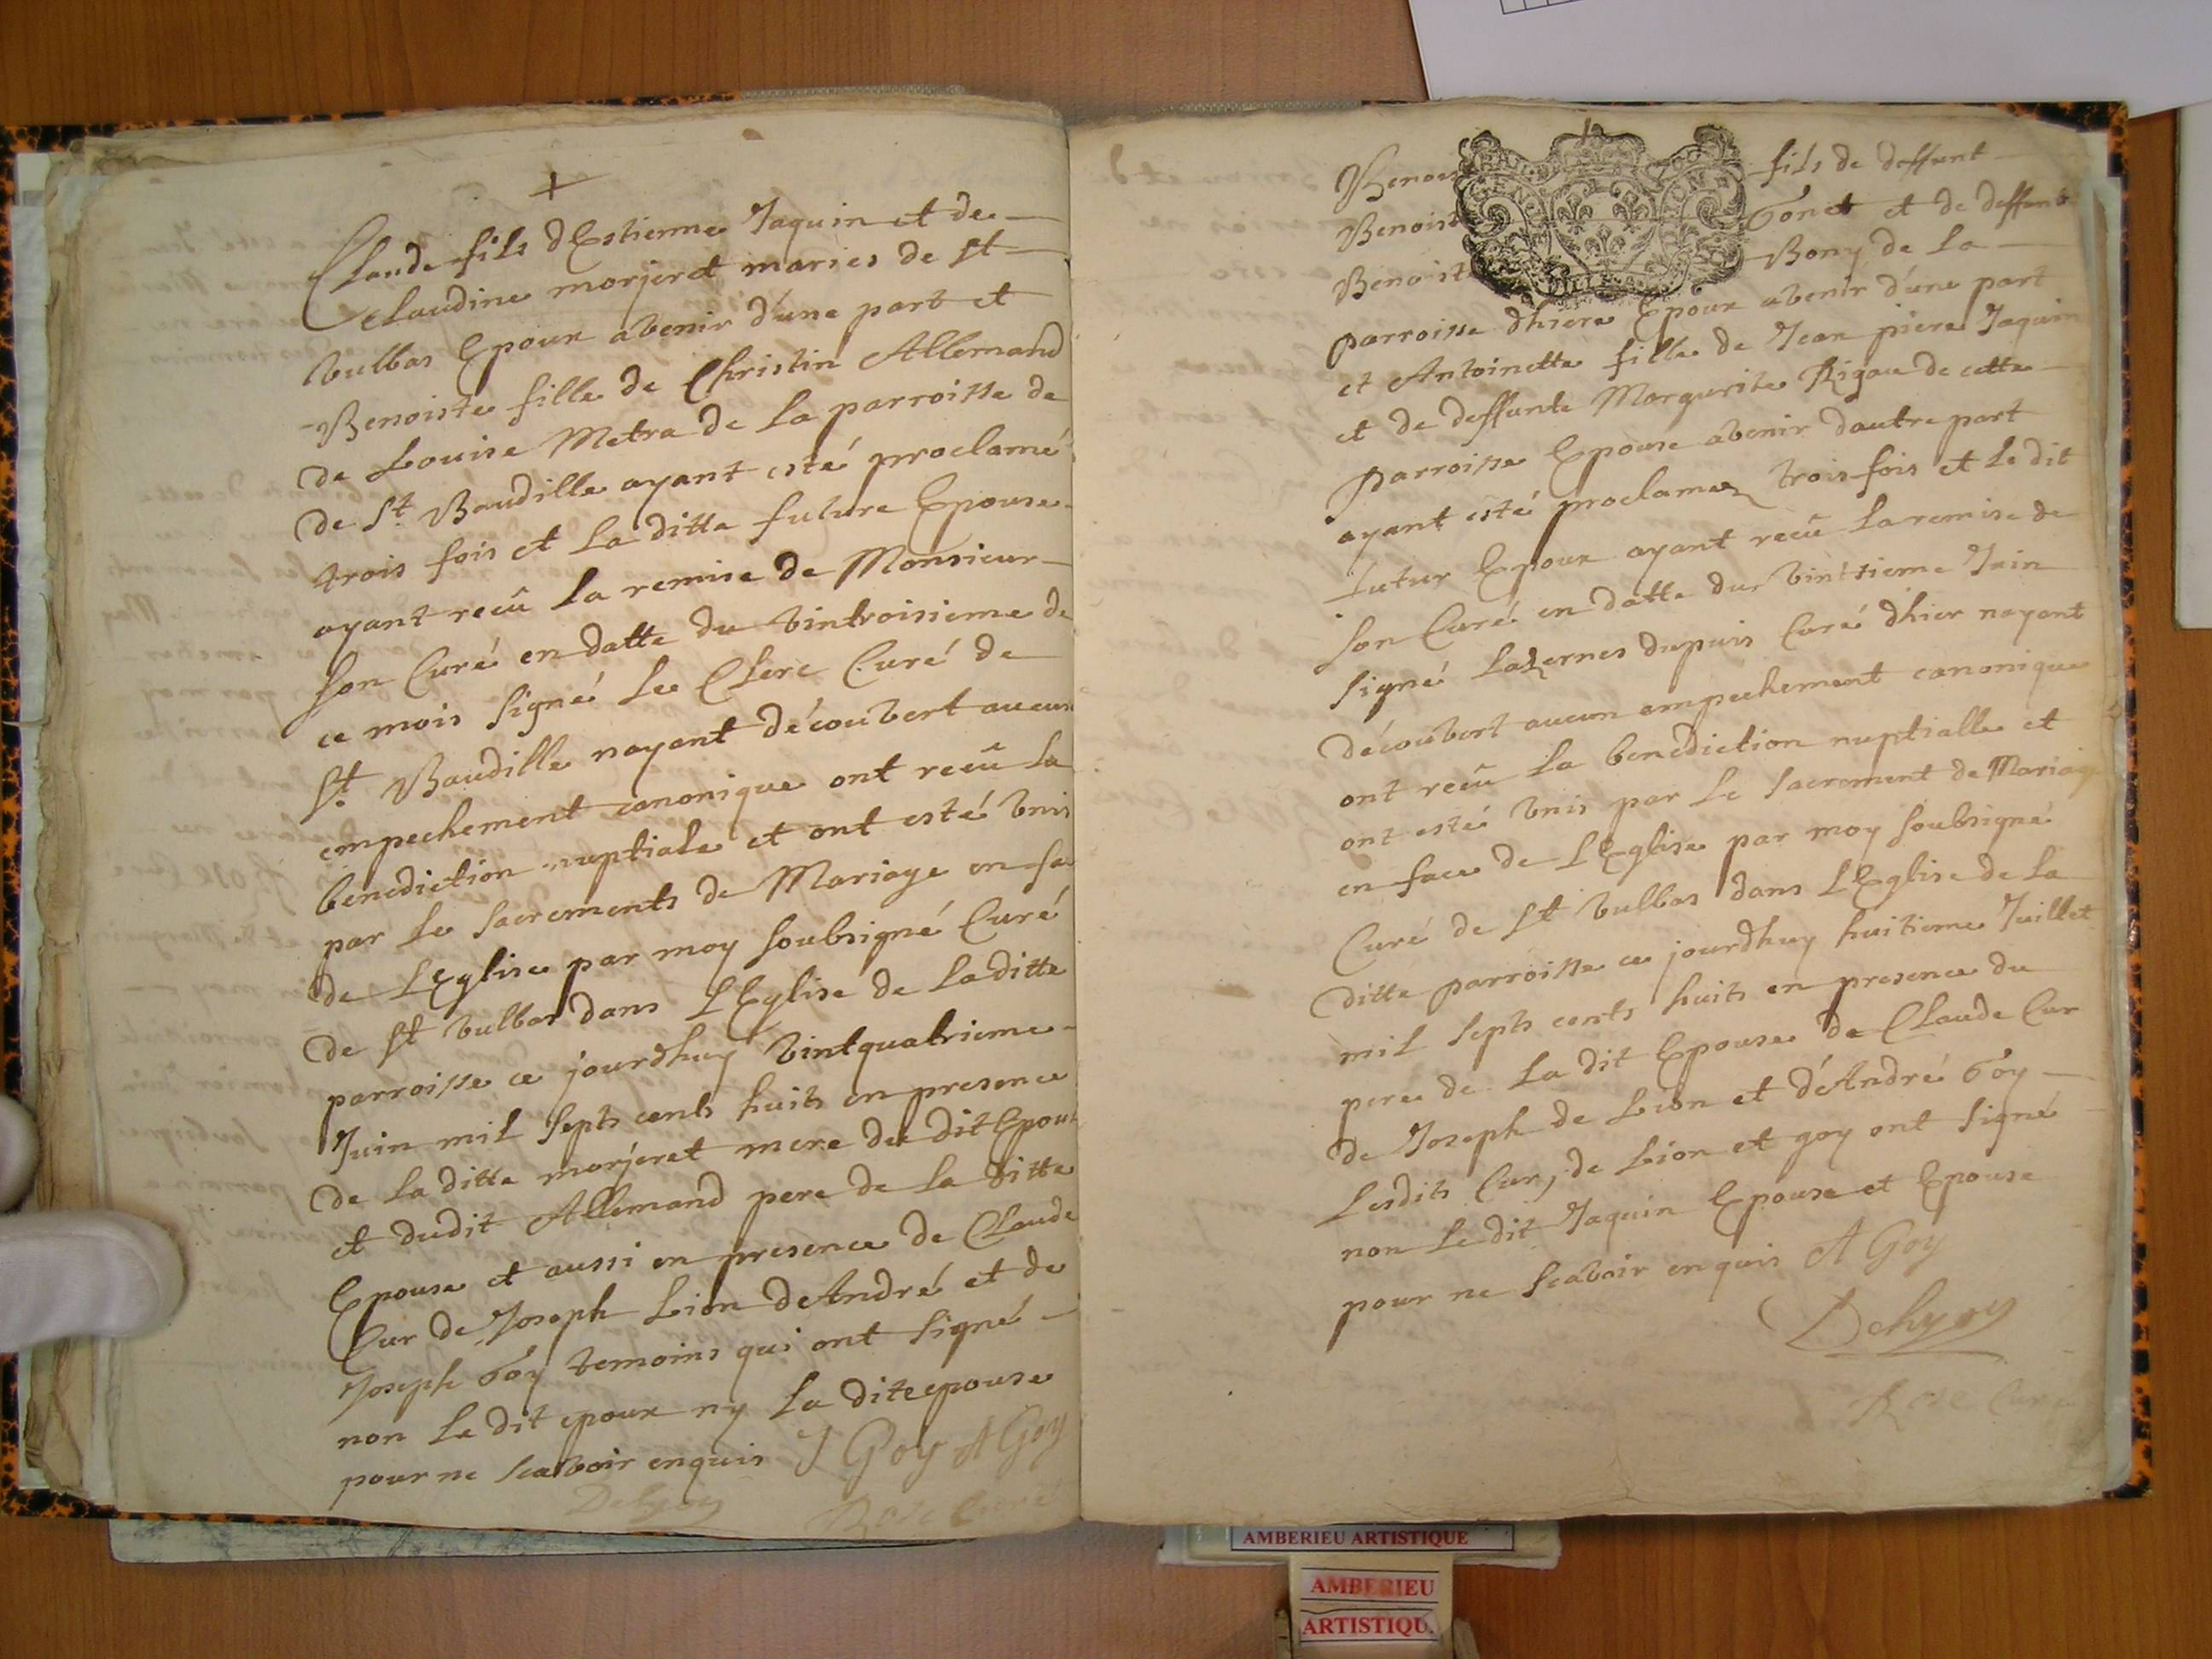 Claude fils dEstienne Jaquin et de
Claudine morjeret maries de St
vulbas Epoux avenir d'une part et
Benoiste fille de Christin Allemand
de Louise Metra de la parroisse de
de St. Baudille ayant esté proclamé
trois fois et la ditte future Epouse
ayant recû la remise de Monsieur
son Curé en datte du vintroisieme de
ce mois signé Le Clerc Curé de
St. Baudille nayant découvert aucun
empechement canonique ont recû la
benediction nuptiale et ont esté vnis
par le sacrements de Mariage en fa
de LEglise par moy soubsigné Curé
de St vulbas dans LEglise de laditte
parroisse ce jourdhuy vintquatrieme
Juin mil septs cents huits en presence
de la ditte morjeret mere du dit Epoux
et dudit Allemand pere de la ditte
Epouse et aussi en presence de Claude
Cur de Joseph Lion dAndré et de
Joseph Goy temoins qui ont signé
non le dit epoux ny la dite epouse
pour ne scavoir enquis J Goy A Goy
Delyon Rose Curé
Benoist fils de deffunt
Benoist Gonet et de deffunte
Benoiste Bony de la
parroisse dhiere Epoux avenir d'une part
et Antoinette fille de Jean piere Jaquin
et de deffunte Margurite Rigau de cette
parroisse Epouse avenir dautre part
ayant esté proclamez trois fois et le dit
futur Epoux ayant recû la remise de
son Curé en datte du vintsieme Juin
signé dupuis Curé dhier nayant
découvert aucun empechement canonique
ont recû la benediction nuptialle et
ont esté vnis par le sacrement de Mariage
en face de LEglise par moy soubsigné
Curé de St vulbas dans LEglise de la
ditte parroisse ce jourdhuy huitieme Juillet
mil septs cents huits en presence du
pere de la dit Epouse de Claude Cur
de Joseph de Lion et d'André Goy
lesdits Cur, de Lion et goy ont signé
non le dit Jaquin Epouse et Epouse
pour ne scavoir enquis A Goy
Delyon
Rose Curé
AMBERIEU ARTISTIQUE
AMBERIEU
ARTISTIQU